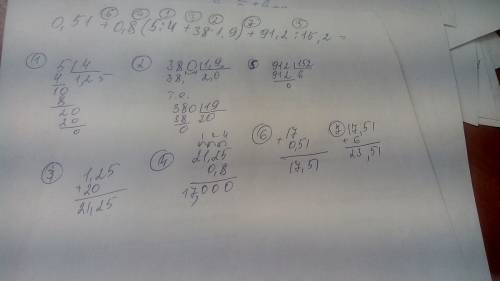 ⑥ ④ ① ③ ② ⑦ ⑤
0,51 + 0,8 (5:4 + 38:1,9) + 91,2 : 15,2 =
① 5 | 4
4 1,25
10
8
20
20
0
② 38,0 | 1,9
38, 2,0
т.е.
380 | 19
38 20
0
5 912 | 152
912 6
0
③ 1,25
+20
21,25
④ 1 2 4
21,25
0,8
17,000
⑥ + 17
0,51
17,51
⑦ 17,51
+ 6
23,51